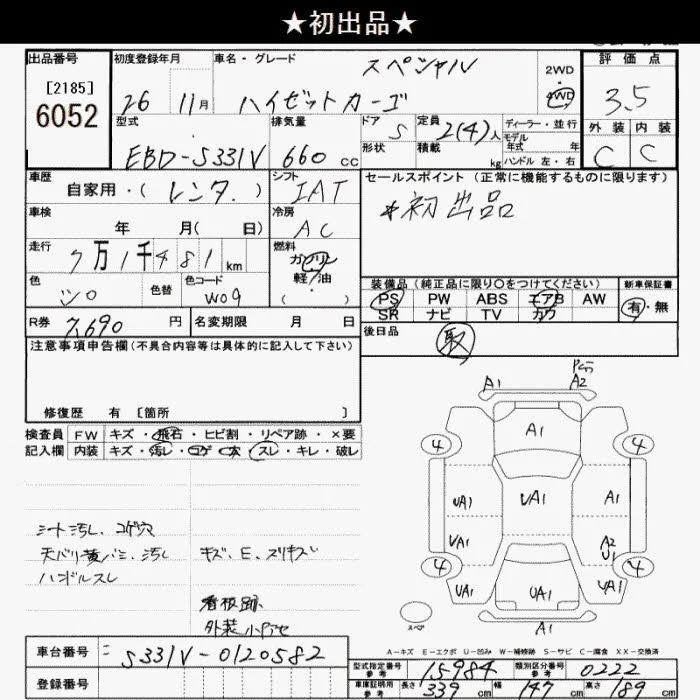 ★初出品★
出品番号
[2185]
6052
初度登録年月
26 11月
車名・グレード
スペシャル
ハイゼットカーゴ
2WD
4WD
評価点
3.5
外装 内装
C C
型式
EBD-S331V
排気量
660 cc
ドア 5
形状
定員 2(4)人
積載 kg
ディーラー・並行
モデル
年式 年
ハンドル 左・右
車歴
自家用・( レンタ. )
シフト
IAT
セールスポイント (正常に機能するものに限ります)
*初出品
車検
年 月( 日)
冷房
AC
走行
7万1千481km
燃料
ガソリン
軽油
色
シロ
色替
色コード
W09
装備品(純正品に限り○をつけてください)
PS PW ABS エアB AW
SR ナビ TV カワ
新車保証書
有・無
R券 7,690円
名変期限 月 日
後日品
取
注意事項申告欄(不具合内容等は具体的に記入して下さい)
修復歴 有 [箇所 ]
検査員 FW キズ・飛石・ヒビ割・リペア跡・×要
記入欄 内装 キズ・汚レ・コゲ・穴・スレ・キレ・破レ
シート汚レ、コゲ穴
天バリ黄バミ、汚レ
ハンドルスレ
キズ、E、スリキズ
看板跡
外装小アセ
A1 A2
A1
4 4
UA1 UA1 A1
UA1 A2
U1
4 4
UA1 UA1 UA1
A1
スペア
A-キズ E-エクボ U-凹み W-補修跡 S-サビ C-腐食 XX-交換済
車台番号 : S331V-0120582
登録番号
型式指定番号
参考
15984
類別区分番号
参考
0222
車庫証明用
参考
長さ 339 cm 幅 147 cm 高さ 189 cm